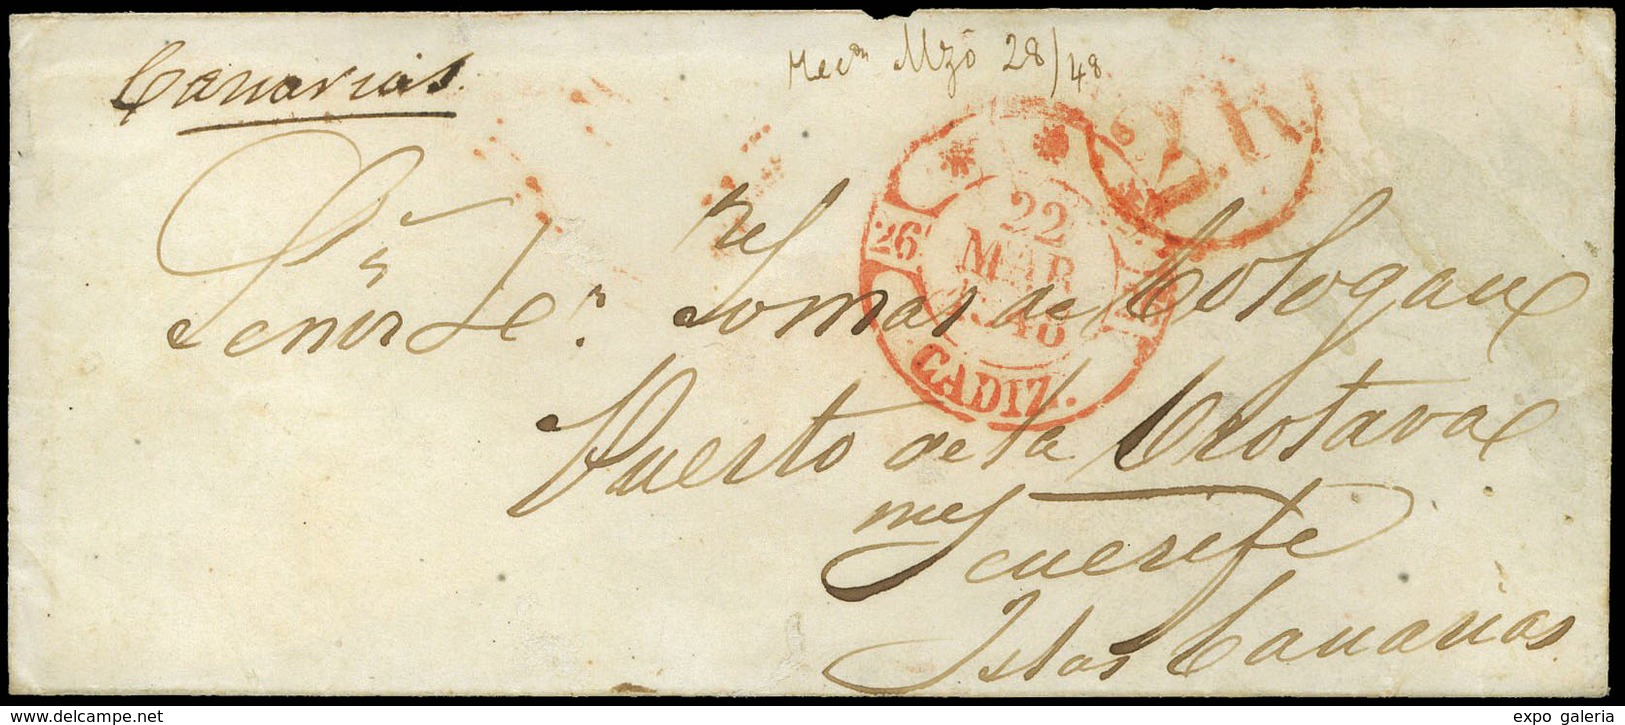 Canarias.
Recdn Mzo 28/48
2.R.
26
22
MAR
1848
CADIZ.
Señor Dn Tomas de Cologan
Puerto de la Orotava
en Tenerife
Islas Canarias.
www.delcampe.net
expo galeria